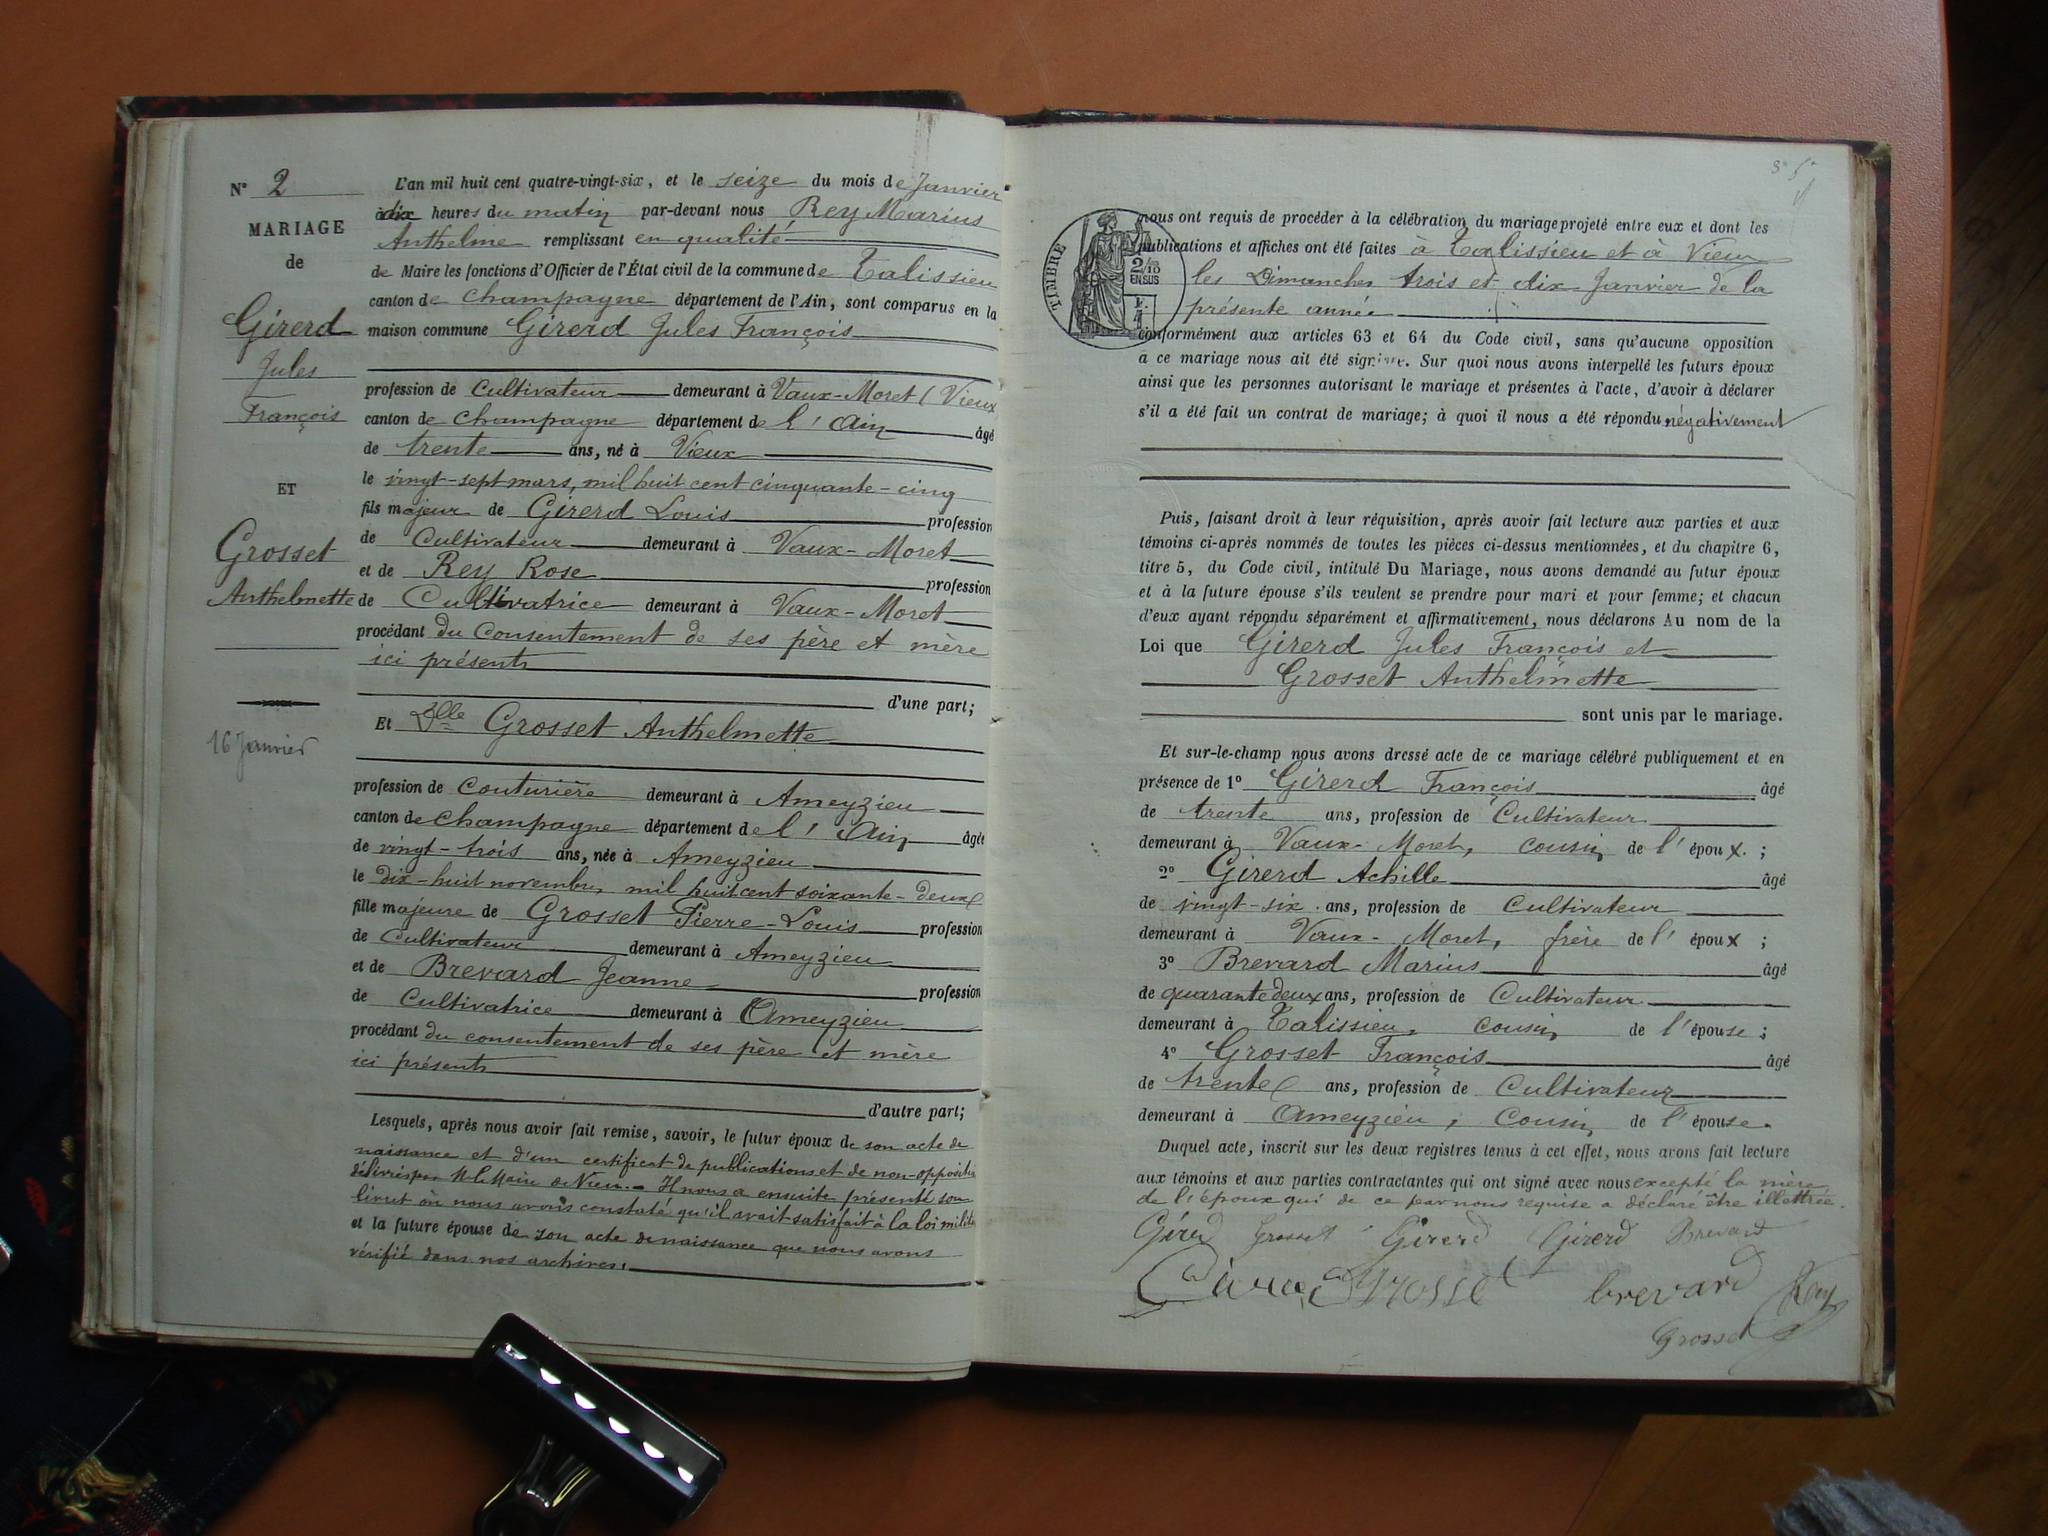 N° 2
MARIAGE
de
Girerd
Jules
François
ET
Grosset
Anthelmette
16 Janvier
L'an mil huit cent quatre-vingt-six, et le seize du mois de Janvier
à dix heures du matin par-devant nous Rey Marius
Anthelme remplissant en qualité
de Maire les fonctions d'Officier de l'État civil de la commune de Talissieu
canton de Champagne département de l'Ain, sont comparus en la
maison commune Girerd Jules François
profession de Cultivateur demeurant à Vaux-Moret (Vieux
canton de Champagne département de l'Ain âgé
de trente ans, né à Vieux
le vingt-sept mars, mil huit cent cinquante-cinq
fils majeur de Girerd Louis profession
de Cultivateur demeurant à Vaux-Moret
et de Rey Rose profession
de Cultivatrice demeurant à Vaux-Moret
procédant du consentement de ses père et mère
ici présents
d'une part;
Et Dlle Grosset Anthelmette
profession de Couturière demeurant à Ameyzieu
canton de Champagne département de l'Ain âgée
de vingt-trois ans, née à Ameyzieu
le dix-huit novembre mil huit cent soixante-deux
fille majeure de Grosset Pierre-Louis profession
de Cultivateur demeurant à Ameyzieu
et de Brevard Jeanne profession
de Cultivatrice demeurant à Ameyzieu
procédant du consentement de ses père et mère
ici présents
d'autre part;
Lesquels, après nous avoir fait remise, savoir, le futur époux de son acte de
naissance et d'un certificat de publications et de non-opposition
délivrés par M. le Maire de Vieu. - Il nous a ensuite présenté son
livret où nous avons constaté qu'il avait satisfait à la loi milit
et la future épouse de son acte de naissance que nous avons
vérifié dans nos archives.
TIMBRE
2/10
EN SUS
nous ont requis de procéder à la célébration du mariage projeté entre eux et dont les
publications et affiches ont été faites à Talissieu et à Vieu
les Dimanches trois et dix Janvier de la
présente année
conformément aux articles 63 et 64 du Code civil, sans qu'aucune opposition
à ce mariage nous ait été signifiée. Sur quoi nous avons interpellé les futurs époux
ainsi que les personnes autorisant le mariage et présentes à l'acte, d'avoir à déclarer
s'il a été fait un contrat de mariage; à quoi il nous a été répondu négativement
Puis, faisant droit à leur réquisition, après avoir fait lecture aux parties et aux
témoins ci-après nommés de toutes les pièces ci-dessus mentionnées, et du chapitre 6,
titre 5, du Code civil, intitulé Du Mariage, nous avons demandé au futur époux
et à la future épouse s'ils veulent se prendre pour mari et pour femme; et chacun
d'eux ayant répondu séparément et affirmativement, nous déclarons Au nom de la
Loi que Girerd Jules François et
Grosset Anthelmette
sont unis par le mariage.
Et sur-le-champ nous avons dressé acte de ce mariage célébré publiquement et en
présence de 1° Girerd François âgé
de trente ans, profession de Cultivateur
demeurant à Vaux-Moret, cousin de l'époux;
2° Girerd Achille âgé
de vingt-six ans, profession de Cultivateur
demeurant à Vaux-Moret, frère de l'époux;
3° Brevard Marius âgé
de quarante deux ans, profession de Cultivateur
demeurant à Talissieu, cousin de l'épouse;
4° Grosset François âgé
de trente ans, profession de Cultivateur
demeurant à Ameyzieu, cousin de l'épouse.
Duquel acte, inscrit sur les deux registres tenus à cet effet, nous avons fait lecture
aux témoins et aux parties contractantes qui ont signé avec nous excepté la mère
de l'époux qui de ce par nous requise a déclaré être illettrée.
Girerd Grosset Girerd Girerd Brevard
Grosset brevard Rey
Grosset